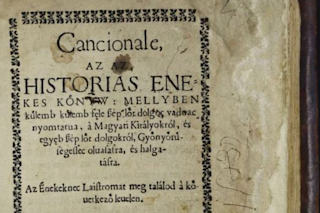 Cancionale,
AZ AZ
HISTORIAS ENE-
KES KÖNYW: MELLYBEN
külemb külemb fele ſzép löt dolgoc vadnac
nyomtatua, à Magyari Királyokról, és
egyéb ſzép löt dolgokról, Gyönyörü-
ségeſſec oluaſaſra, és halga-
táſra.
Az Énekeknec Laiſtromat meg találod à kö
uetkezö leuelen.